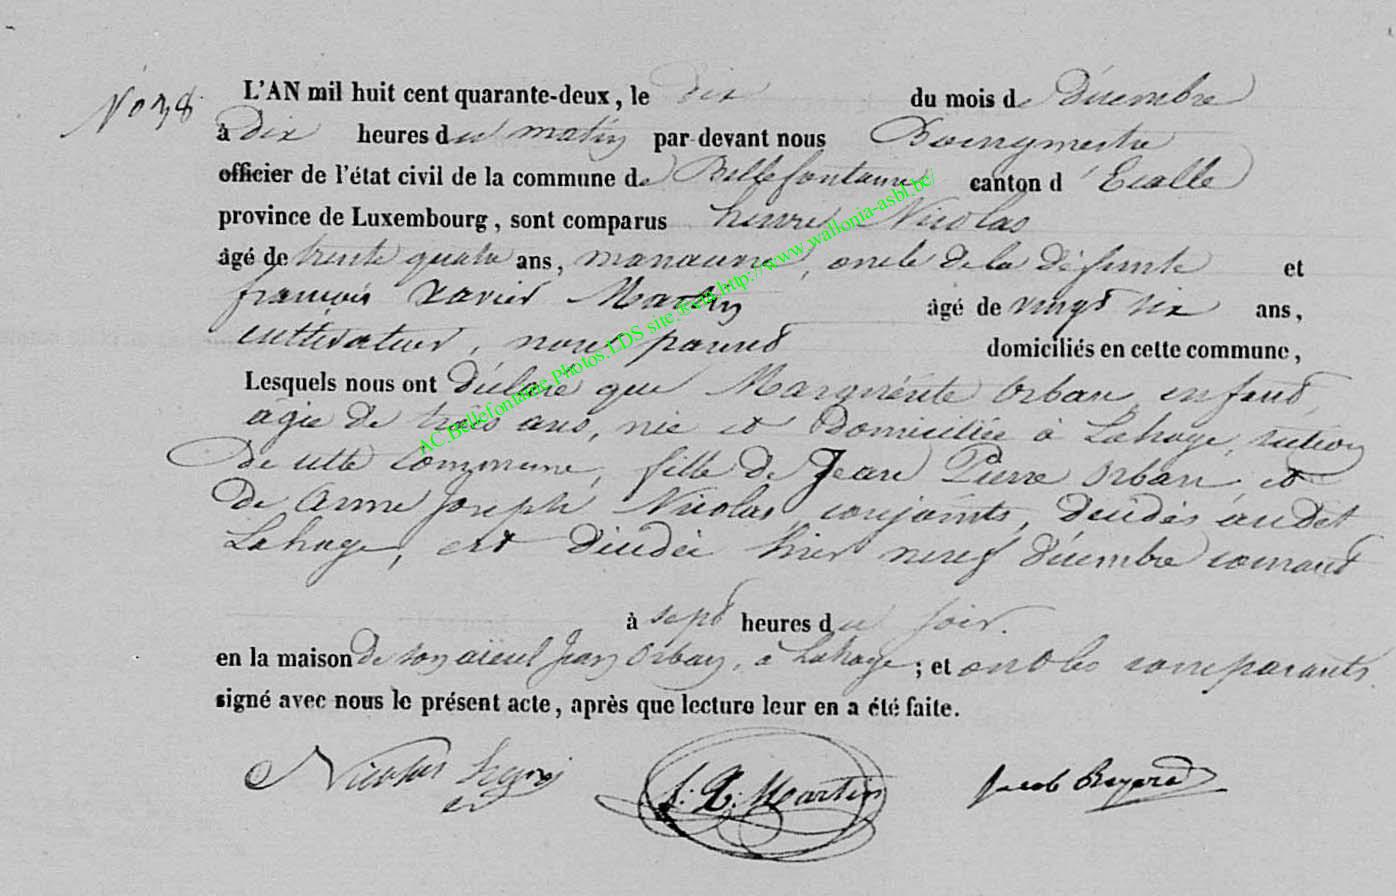 N° 38
L'AN mil huit cent quarante-deux, le dix du mois de Décembre
à Dix heures du matin par-devant nous Bourgmestre
officier de l'état civil de la commune de Bellefontaine canton d'Etalle
province de Luxembourg, sont comparus henri Nicolas
âgé de trente quatre ans, manœuvre, oncle de la défunte et
françois Xavier Martin âgé de vingt six ans,
cultivateur, non parent domiciliés en cette commune,
Lesquels nous ont Déclaré que Marguérite Orban, enfant,
agée de trois ans, née et Domiciliée à Lahage, section
de cette Commune, fille de Jean Pierre Orban et
de Anne Joseph Nicolas, conjoints, décédés audet
Lahage, est décédée hier neuf décembre courant
à sept heures du soir.
en la maison de son aieul Jean Orban, à Lahage; et ont les comparants
signé avec nous le présent acte, après que lecture leur en a été faite.
Nicolas henri f. X. Martin Jacob
AC.Bellefontaine.Photos.LDS site.Isera.http://www.wallonia-asbl.be/